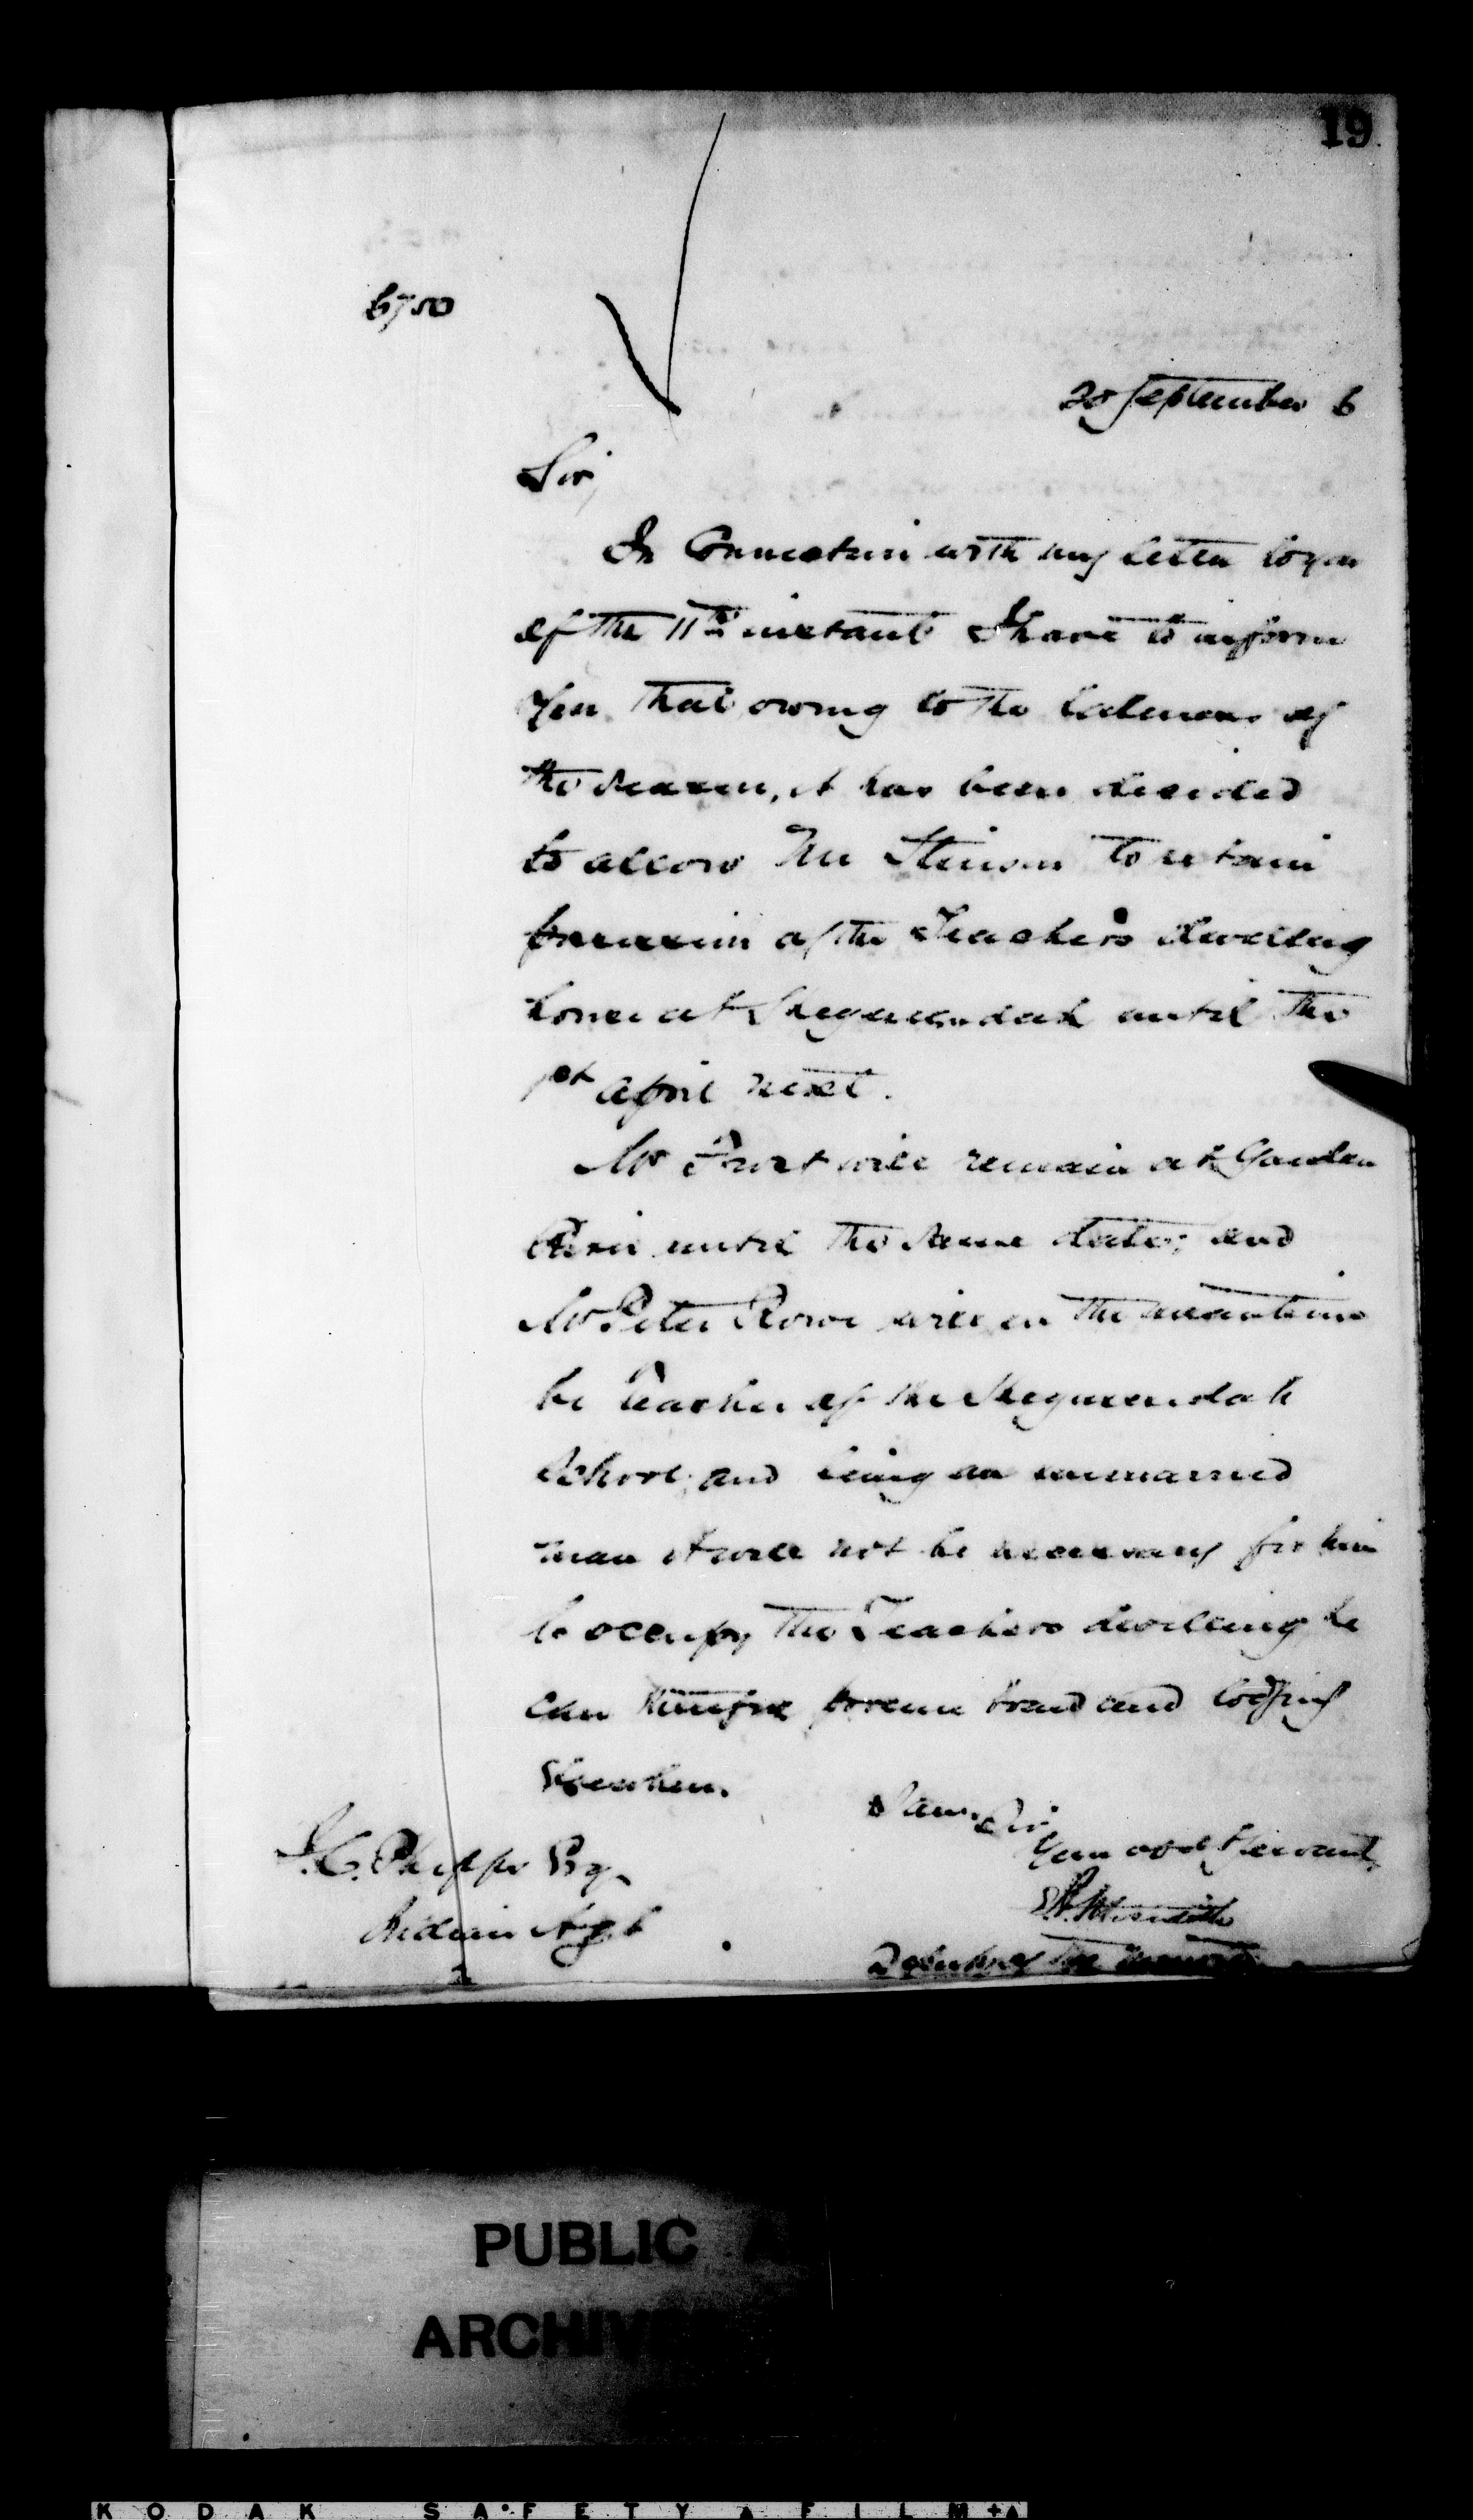 19
6750
20 September 6
Sir,
In Connection with my letter to you
of the 11th instant I have to inform
you that owing to the lateness of
the season, it has been decided
to allow Mr Stinson to retain
possession of the Teachers dwelling
house at Sheguiandah until the
1st April next.
Mr Frost will remain at Garden
River until the same date; and
Mr Peter Rowe will in the meantime
be teacher of the Sheguiandah
School; and being an unmarried
man it will not be necessary for him
to occupy the Teachers dwelling he
can procure board and lodging
elsewhere.
I am, Sir
Your obdt Servant,
J.C. Phipps Esq.
Indian Agt
E. Meredith
Deputy of the Minister
PUBLIC
ARCHIV
KODAK SAFETY FILM